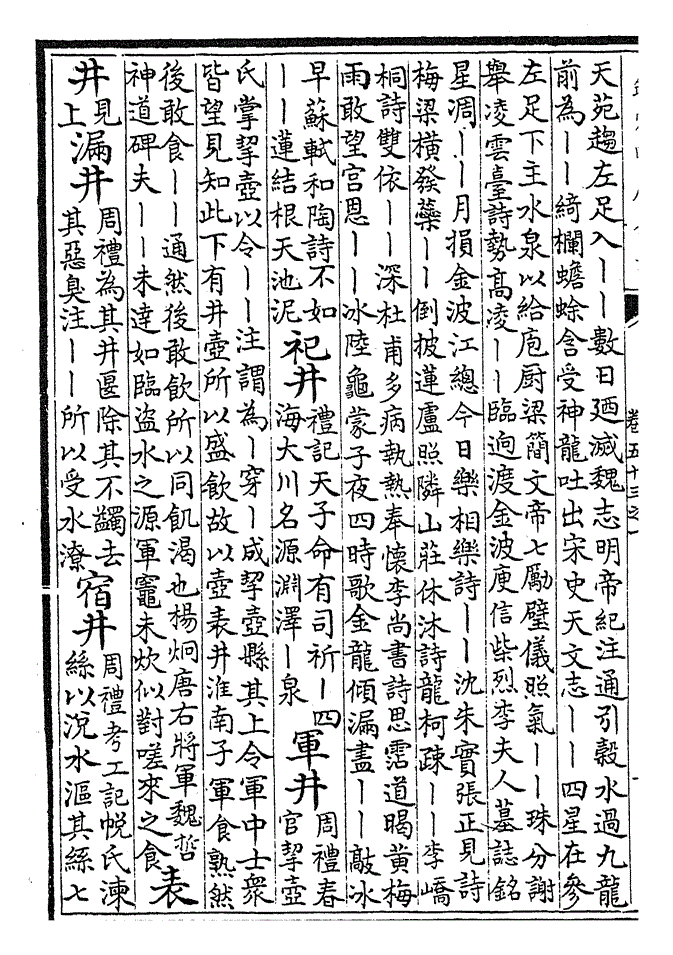 卷五十三之一
天苑趨左足入丨丨數日廼滅魏志明帝紀注通引穀水過九龍
前為丨丨綺欄蟾蜍含受神龍吐出宋史天文志丨丨四星在參
左足下主水泉以給庖厨梁簡文帝七勵璧儀照氣丨丨珠分謝
舉凌雲臺詩勢高凌丨丨臨逈渡金波庾信柴烈李夫人墓誌銘
星凋丨丨月損金波江總今日樂相樂詩丨丨沈朱實張正見詩
梅梁橫發蘂丨丨倒披蓮盧照隣山莊休沐詩龍柯疎丨丨李嶠
桐詩雙依丨丨深杜甫多病執熱奉懷李尚書詩思霑道暍黄梅
雨敢望宮恩丨丨冰陸龜蒙子夜四時歌金龍傾漏盡丨丨敲冰
早蘇軾和陶詩不如
丨丨蓮結根天池泥
祀井
禮記天子命有司祈丨四
海大川名源淵澤丨泉
軍井
周禮春
官挈壺
氏掌挈壺以令丨丨注謂為丨穿丨成挈壺縣其上令軍中士衆
皆望見知此下有井壺所以盛飲故以壺表井淮南子軍食熟然
後敢食丨丨通然後敢飲所以同飢渴也楊炯唐右將軍魏哲
神道碑夫丨丨未達如臨盜水之源軍竈未炊似對嗟來之食
表
井
見
上
漏井
周禮為其井匽除其不蠲去
其惡臭注丨丨所以受水潦
宿井
周禮考工記㡛氏湅
絲以涚水漚其絲七